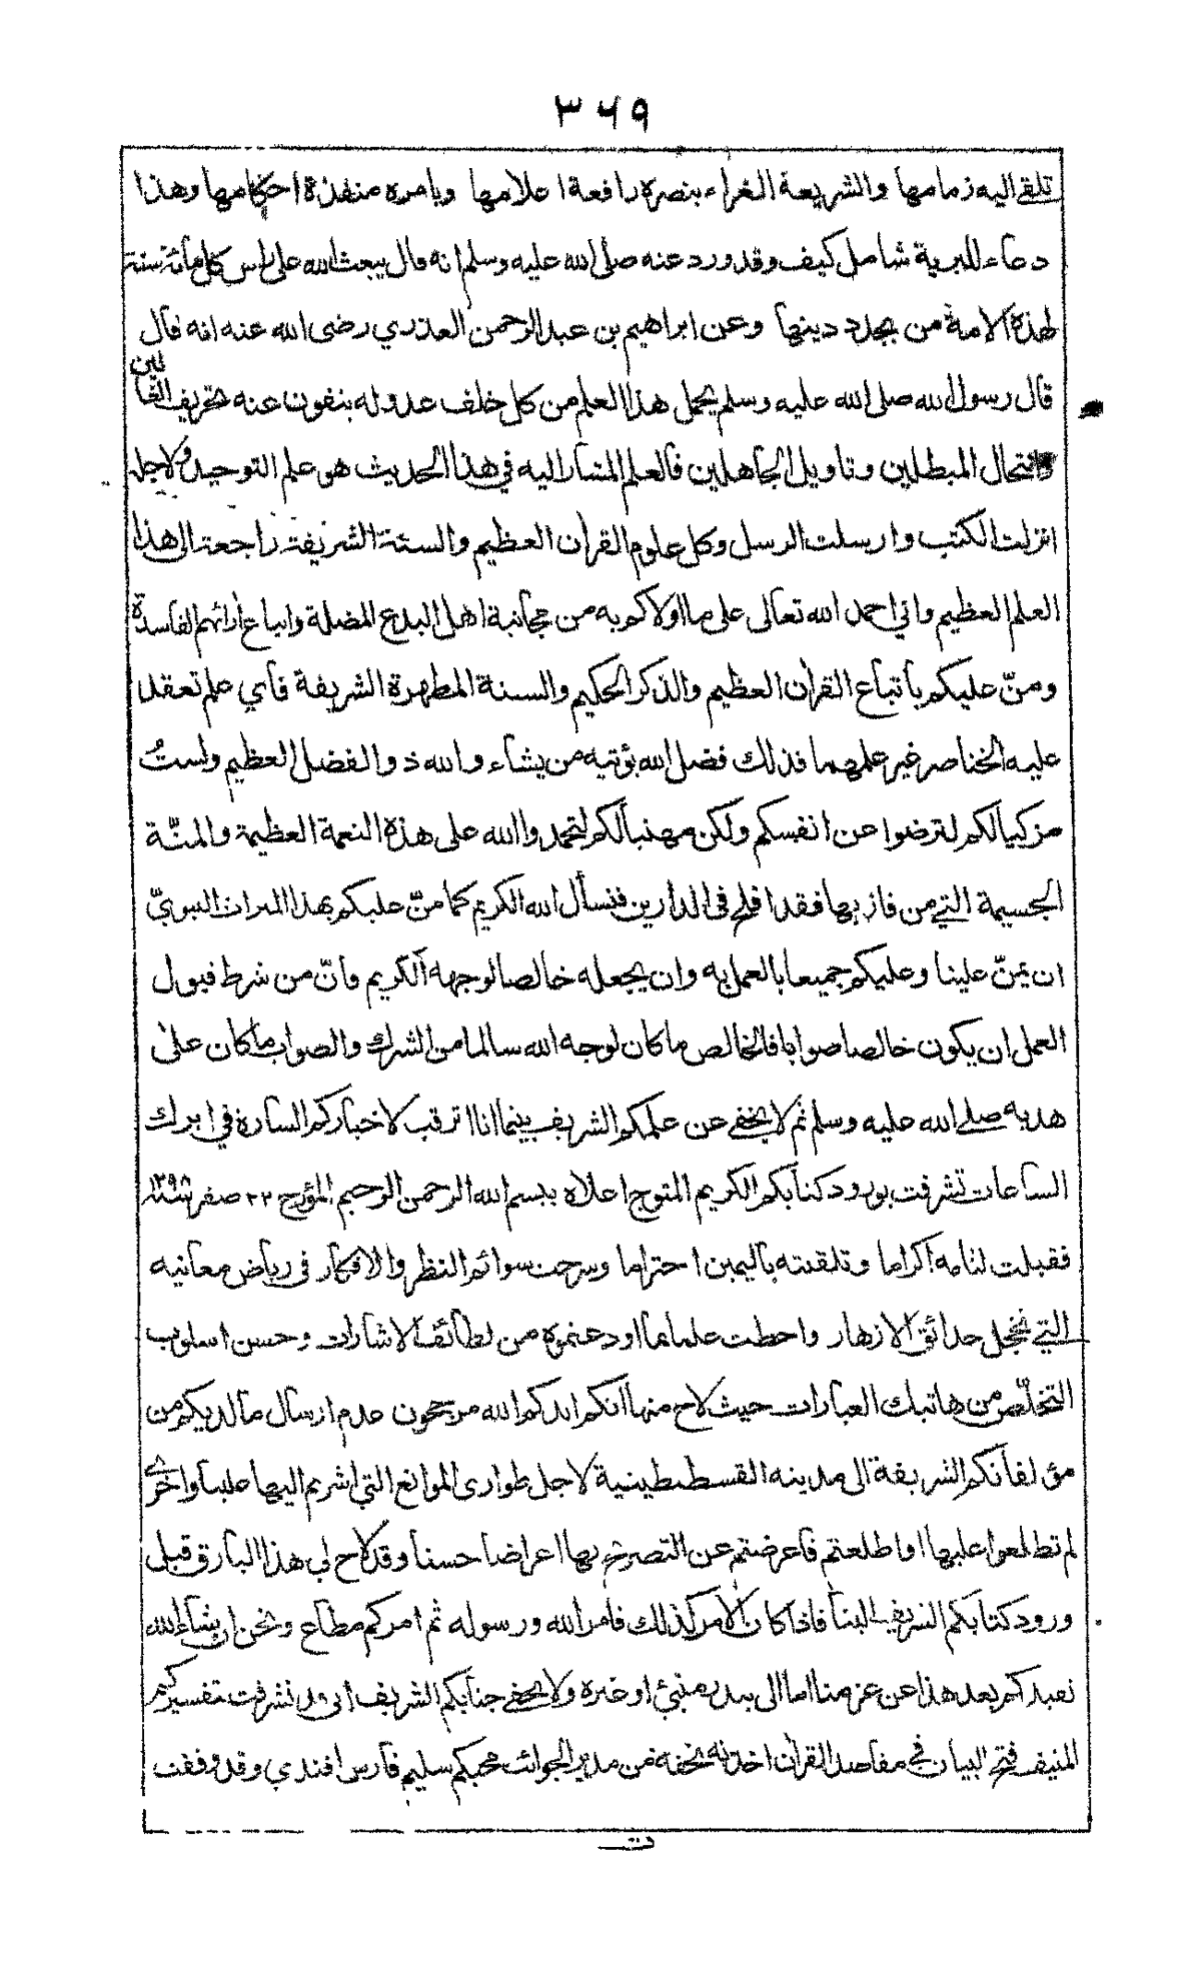 ٣٦٩
تلقى اليه زمامها والشريعة الغراء بنصره رافعة اعلامها وبامره منفذة احكامها وهذا
دعاء للبرية شامل كيف وقد ورد عنه صلى الله عليه وسلم انه قال يبعث الله على راس كل مائة سنة
لهذه الامة من يجدد دينها وعن ابراهيم بن عبد الرحمن العذري رضى الله عنه انه قال
قال رسول الله صلى الله عليه وسلم يحمل هذا العلم من كل خلف عدوله ينفون عنه تحريف الغالين
وانتحال المبطلين وتاويل الجاهلين فالعلم المشار اليه في هذا الحديث هو علم التوحيد ولاجله
انزلت الكتب وارسلت الرسل وكل علوم القران العظيم والسنة الشريفة راجعة الى هذا
العلم العظيم واني احمد الله تعالى على ما اولاكم به من مجانبة اهل البدع المضلة واتباع ارائهم الفاسدة
ومنّ عليكم باتباع القران العظيم والذكر الحكيم والسنة المطهرة الشريفة فأي علم تعقد
عليه الخناصر غير علمهما فذلك فضل الله يؤتيه من يشاء والله ذو الفضل العظيم ولستُ
مزكيا لكم لترضوا عن انفسكم ولكن مهنيا لكم لتحمدوا الله على هذه النعمة العظيمة والمنّة
الجسيمة التي من فاز بها فقد افلح في الدارين فنسأل الله الكريم كما منّ عليكم بهذا الميراث النبويّ
ان يمنّ علينا وعليكم جميعا بالعمل به وان يجعله خالصا لوجهه الكريم وانّ من شرط قبول
العمل ان يكون خالصا صوابا فالخالص ما كان لوجه الله سالما من الشرك والصواب ما كان على
هديه صلى الله عليه وسلم ثم لا يخفى عن علمكم الشريف بينما انا اترقب لاخباركم السارة في ابرك
الساعات تشرفت بورود كتابكم الكريم المتوج اعلاه ببسم الله الرحمن الرحيم المؤرخ ٢٢ صفر سنة ١٢٩٨
فقبلت لثامه اكراما وتلقته باليمين احتراما وسرحت سوائم النظر والافكار في رياض معانيه
التي تخجل حدائق الازهار واحطت علما بما اودعتموه من لطائف الاشارات وحسن اسلوب
التخلّص من هاتيك العبارات حيث لاح منها انكم ايدكم الله مرجحون عدم ارسال ما لديكم من
مؤلفاتكم الشريفة الى مدينه القسطنطينية لاجل طوارى الموانع التي اشرتم اليها علينا واخرى
لم تطلعوا عليها او اطلعتم فاعرضتم عن التصريح بها اعراضا حسنا وقد لاح لي هذا البارق قبل
ورود كتابكم الشريف الينا فاذا كان الامر كذلك فامر الله ورسوله ثم امركم مطاع ونحن ان يشاء الله
نعيدكم بعد هذا عن عزمنا اما الى بندر منبئ او غيره ولا يخفى جنابكم الشريف اني قد تشرفت بتفسيركم
المنيف فتح البيان في مقاصد القران اخذته تحفة من مدير الجوائب محبكم سليم فارس افندي وقد وقفت